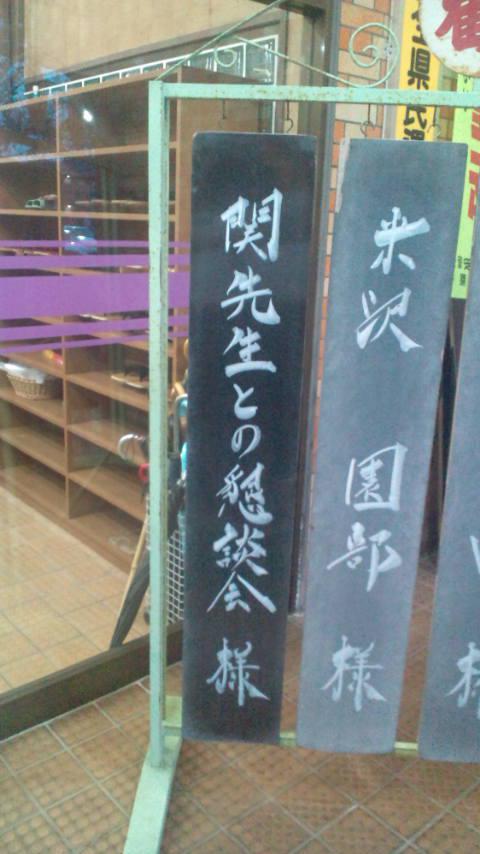 関先生との懇談会 様
米沢 園部 様
様
県民